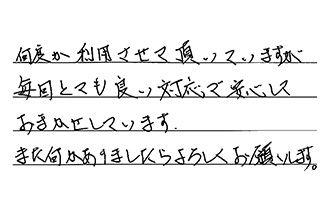 何度か利用させて頂いていますが
毎回とても良い対応で安心して
おまかせしています.
また何かありましたらよろしくお願いします。